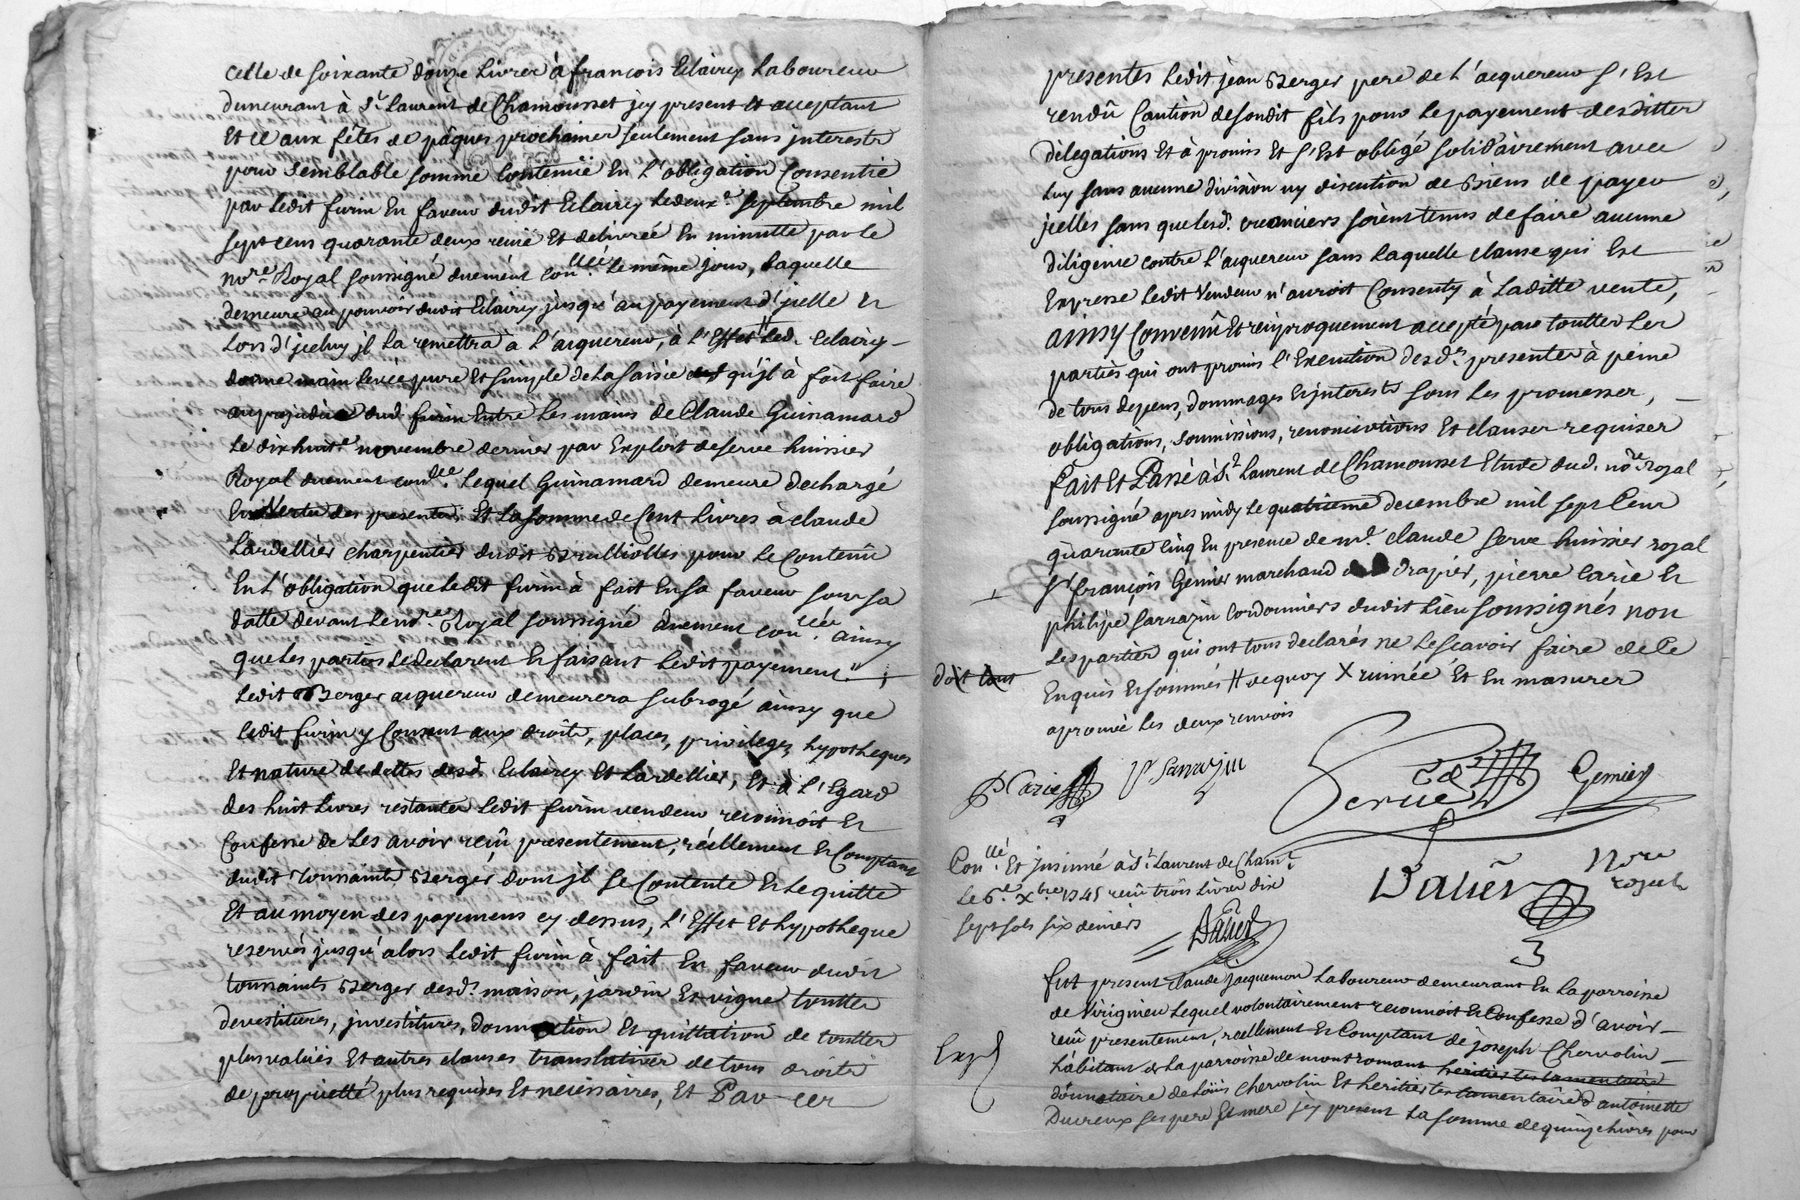 celle de soixante douze livres à françois Eclaircy laboureur
demeurant à St. Laurent de Chamousset jcy present et acceptant
Et ce aux fêtes de pâques prochaines seulement sans jnterests
pour semblable somme contenüe En l'obligation Consentie
par ledit furin En faveur dudit Eclaircy le deuxe. septembre mil
sept cens quarante deux reçüe Et delivreé En minutte par le
nore. Royal soussigné duement conllée. le même jour, Laquelle
demeure au pouvoir dudit Eclaircy jusqu'au payement d'jcelle Et
Lors d'jceluy jl la remettra à l'acquereur, à l'Effet led. Eclaircy
donne main levée pure Et simple de la saisie qu'jl à fait faire
au prejudice dud. furin Entre les mains de Claude Guinamard
Le dix huite. novembre dernier par Exploit de serve huissier
Royal duement condlée. Lequel Guinamard demeure dechargé
En Vertu des presentes. Et la somme de Cent livres à claude
Lardellier charpentier dudit Brulliolles pour le Contenu
En l'obligation que ledit furin à fait En sa faveur sous sa
datte devant le nore. Royal soussigné duement conllée. ainsy
que les parties le declarent En faisant ledit payement.
Ledit Berger acquereur demeurera subrogé ainsy que
Ledit furin y Consent aux droits, places, privileges, hypotheques
Et nature de dettes desd. Eclaircy Et Lardellier, Et à l'Egard
des huit livres restantes ledit furin vendeur reconnoit Et
Confesse de les avoir reçû presentement, réellement Et Comptant
dudit toussaints Berger dont jl se Contente Et le quitte
Et au moyen des payemens cy dessus, l'Effet Et hypotheque
reservés jusqu'alors ledit furin à fait En faveur dudit
toussaints Berger desd. maison, jardin Et vigne touttes
devestitures, jnvestitures, donnation Et quittation de touttes
plus values Et autres clauses translatives de tous droits
de proprietté plus requises Et necessaires, Et Par ces
presentes ledit jean Berger pere de l'acquereur s'Est
rendû Caution desondit fils pour le payement desdittes
délegations Et à promis Et s'Est obligé solidairement avec
Luy sans aucune division ny discution de Biens de payer
jcelles sans que lesd. creanciers soient tenus de faire aucune
diligence contre l'acquereur sans laquelle clause qui Est
Expresse ledit Vendeur n'auroit Consenty à laditte vente,
ainsy Convenû Et reciproquement accepté par touttes les
parties qui ont promis l'Execution desdes. presentes à peine
de tous depens, dommages Et jnterests sous les promesses,
obligations, soumissions, renonciations Et clauses requises
Fait Et Passé à St. Laurent de Chamousset Etude dud. nore. Royal
soussigné apres midy le quatrieme decembre mil sept Cens
quarante Cinq En presence de me. claude serve huissier royal
sr. françois Genier marchand drapier, pierre Carie Et
philipe sarrazin Cordonniers dudit lieu soussignés non
Les parties qui ont tous declarés ne le scavoir faire de ce
doit tout
Enquis Et sommés # de quoy X ruinée Et En masures
aprouvé les deux renvois
P Carie P Sarrazin Serve Genier
Conllé. Et jnsinué à St. Laurent de Chamt.
Le 6e. Xbre. 1745 reçû trois livres dix
sept sols six deniers
Dalier Nore royal
Dalier
Fut present Claude jacquemon Laboureur demeurant En la parroisse
de Virignieu Lequel volontairement reconnoit Et Confesse d'avoir
reçû presentement, reellement Et Comptant de joseph Chervolin
Expé
habitant de la parroisse de montromant heritier testamentaire
donnataire de Loüis Chervolin Et heritier testamentaire d'antoinette
Ducreux ses pere Et mere jcy present La somme de quinze livres pour